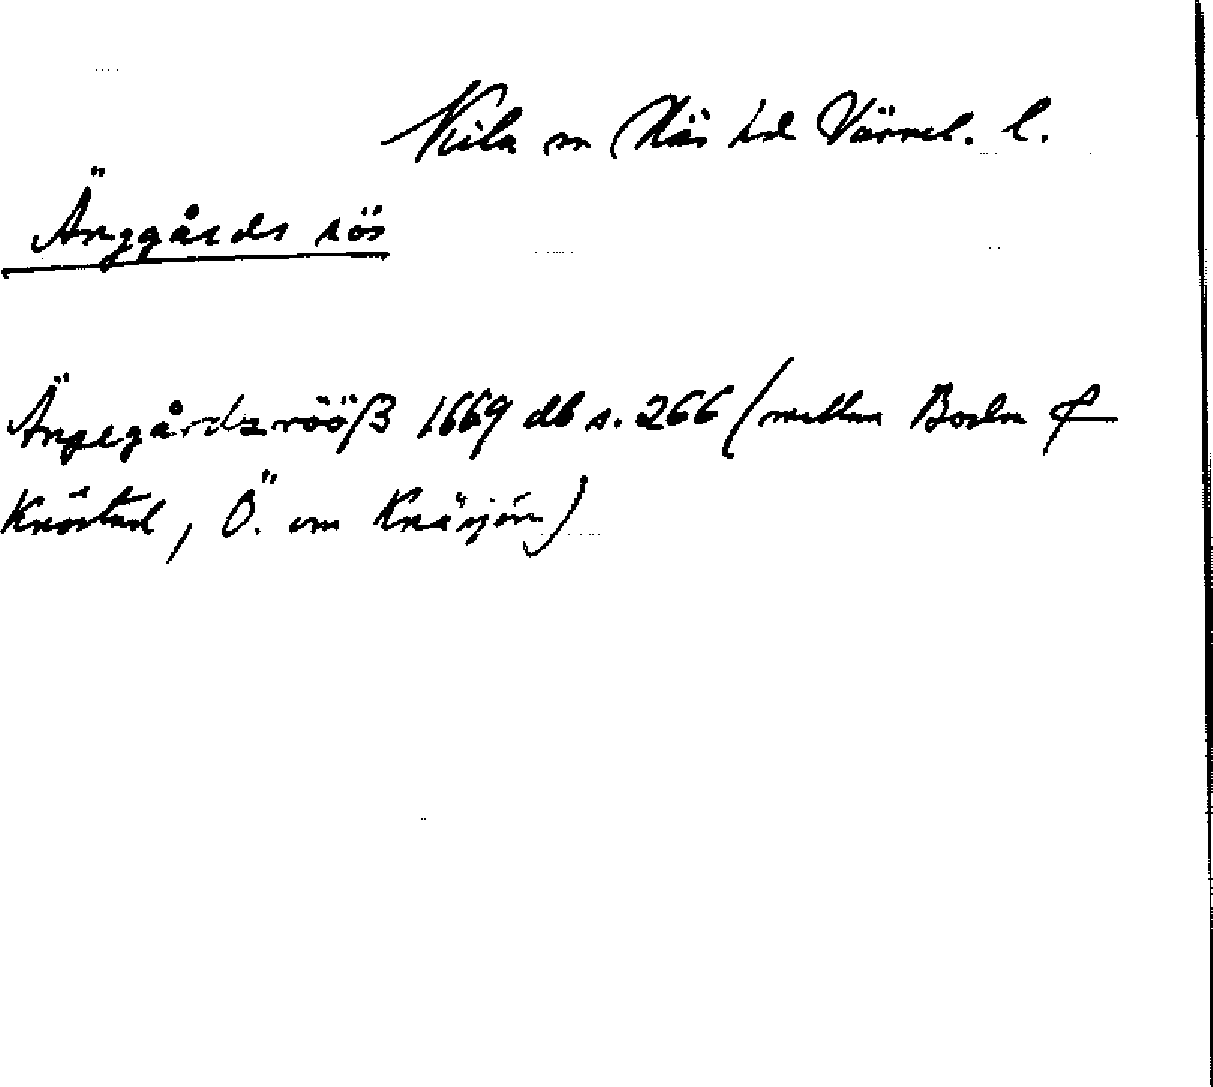 Kila sn Näs hd Värml. l.
Änggårds rös
Ängegårdz rööß 1669 db s. 266 (mellan Boda &
Knöstad, Ö. om Knäsjön)